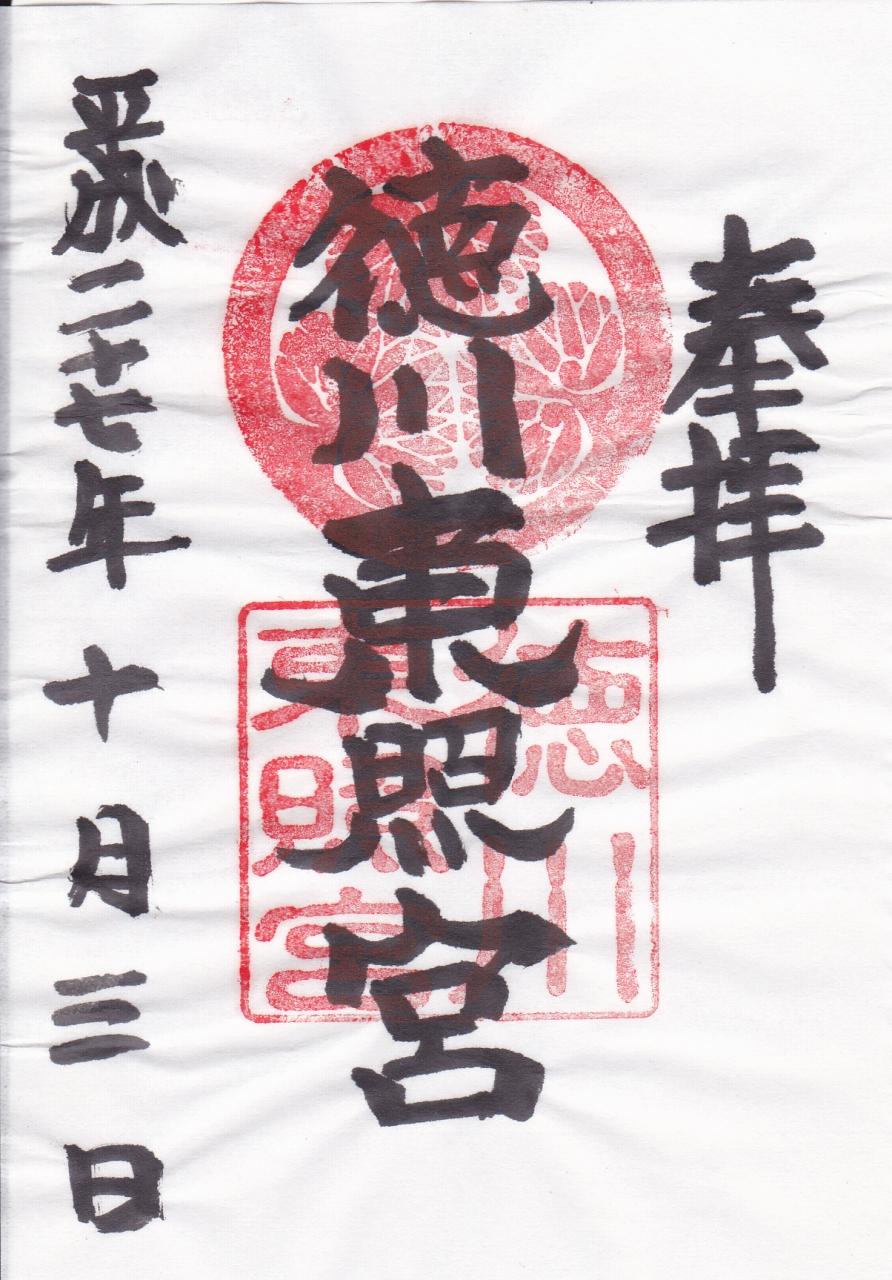 奉拝
徳川東照宮
徳川
東照宮
平成二十七年十月三日